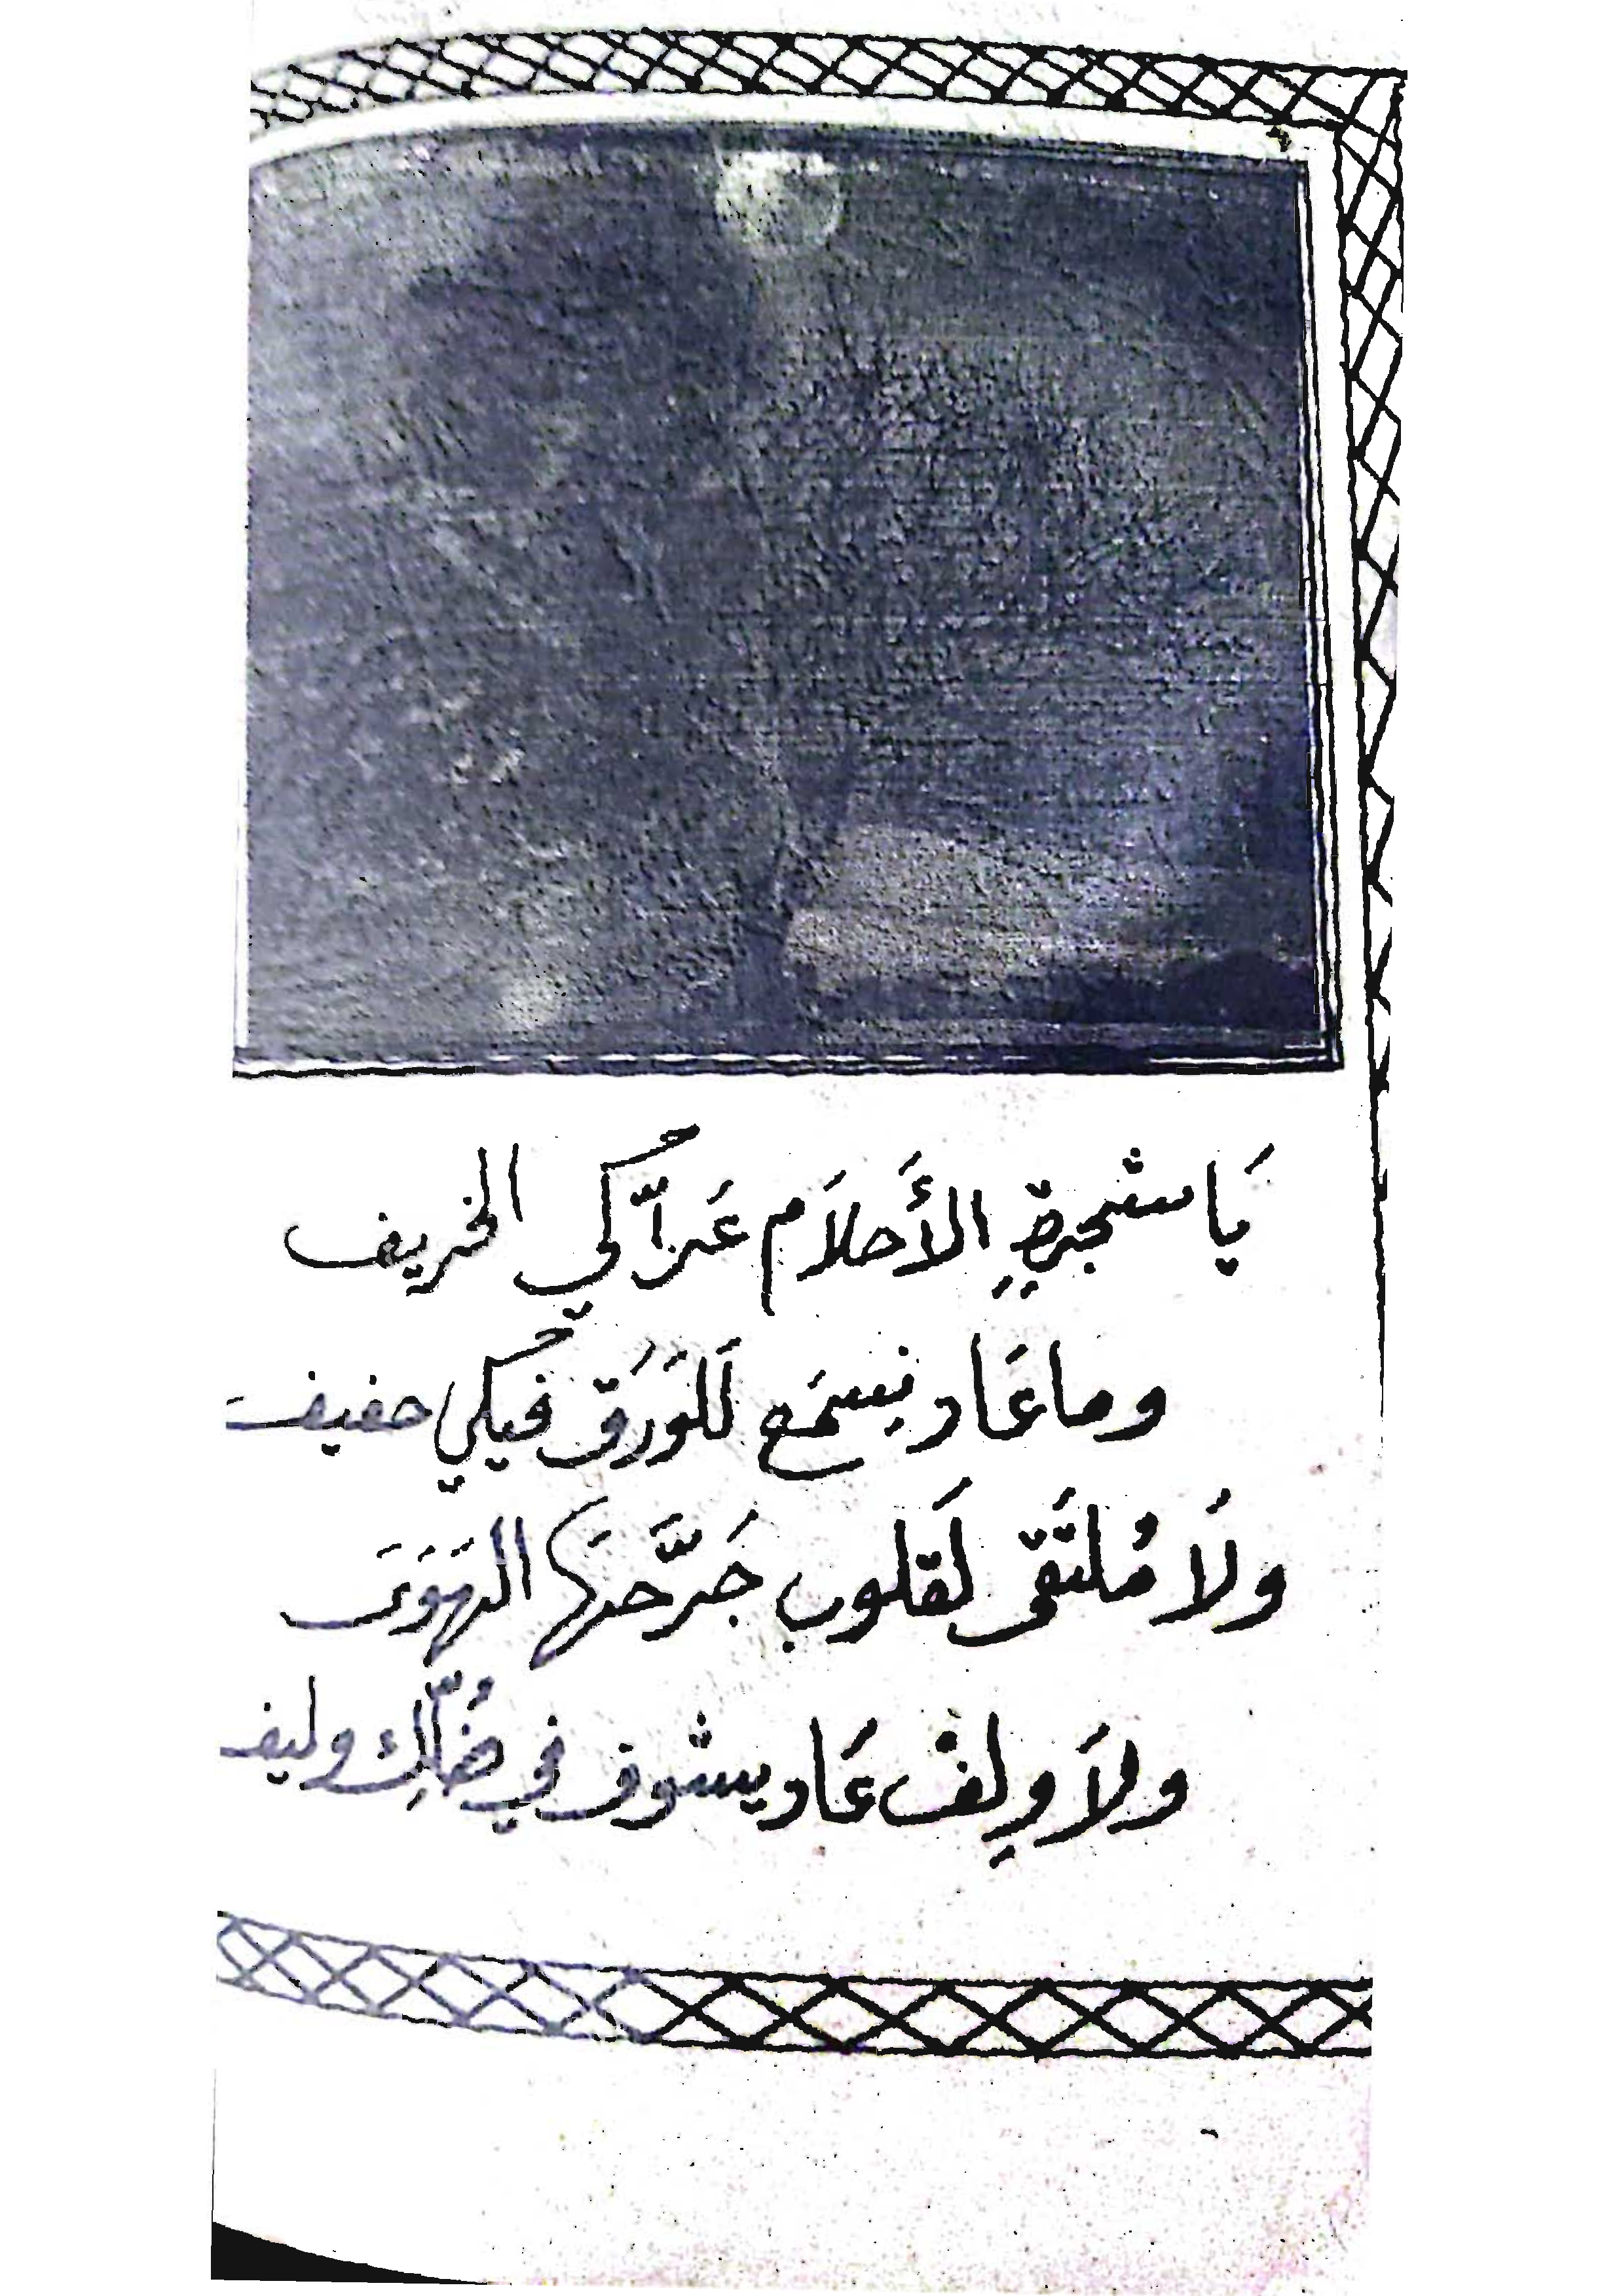 يَا شجرةِ الأَحلاَم عَزّاكي الخريف
وما عَاد نِسمَع لَلوَرَق فيكي حفيف
ولَا مُلتَقى لَقلوب جَرَّحتَها الهَوَى
ولاَ وِلفْ عَاد يشوف في ضُلّك وليف